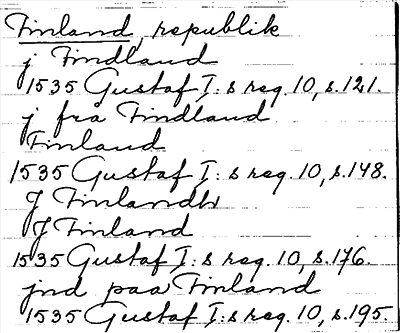 Finland, republik
j Findland
1535 Gustaf I:s reg. 10, s. 121.
j frå Findland
Finland
1535 Gustaf I:s reg. 10, s. 148.
J Finlandh
J Finland
1535 Gustaf I:s reg. 10, s. 176.
jnd paa Finland
1535 Gustaf I:s reg. 10, s. 195.